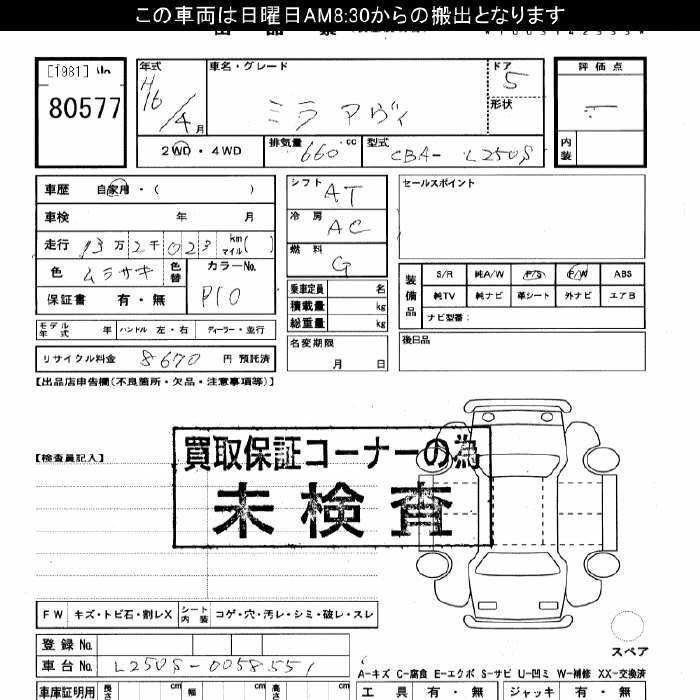 この車両は日曜日AM8:30からの搬出となります
[1981] No
80577
年式 車名・グレード ドア 評価点
H16/4月 ミラ アヴィ 5
形状
2WD・4WD 排気量 660 cc 型式 CBA- L250S 内装
車歴 自家用・( ) シフト AT セールスポイント
車検 年 月 冷房 AC
走行 13万2千023 km マイル( ) 燃料 G
色 ムラサキ 色替 カラーNo. P10
保証書 有・無
乗車定員 名
積載量 kg
総重量 kg
装備品 S/R 純A/W P/S P/W ABS
純TV 純ナビ 革シート 外ナビ エアB
ナビ型番:
モデル年式 年 ハンドル 左・右 ディーラー・並行
名変期限 月 日
後日品
リサイクル料金 8670 円 預託済
【出品店申告欄(不良箇所・欠品・注意事項等)】
【検査員記入】
買取保証コーナーの為
未検査
FW キズ・トビ石・割レX シート内装 コゲ・穴・汚レ・シミ・破レ・スレ
スペア
登録No.
車台No. L250S-0058551
A-キズ C-腐食 E-エクボ S-サビ U-凹ミ W-補修 XX-交換済
車庫証明用 長さ cm 幅 cm 高さ cm 工具 有・無 ジャッキ 有・無